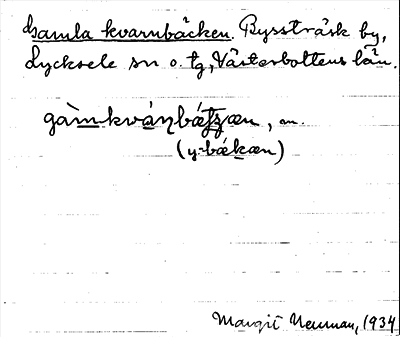 Gamla kvarnbäcken. Russträsk by,
Lycksele sn o. tg, Västerbottens län.
gàmkvárɳbætʂæn, m.
(y-bákæn)
Margit Neuman, 1934